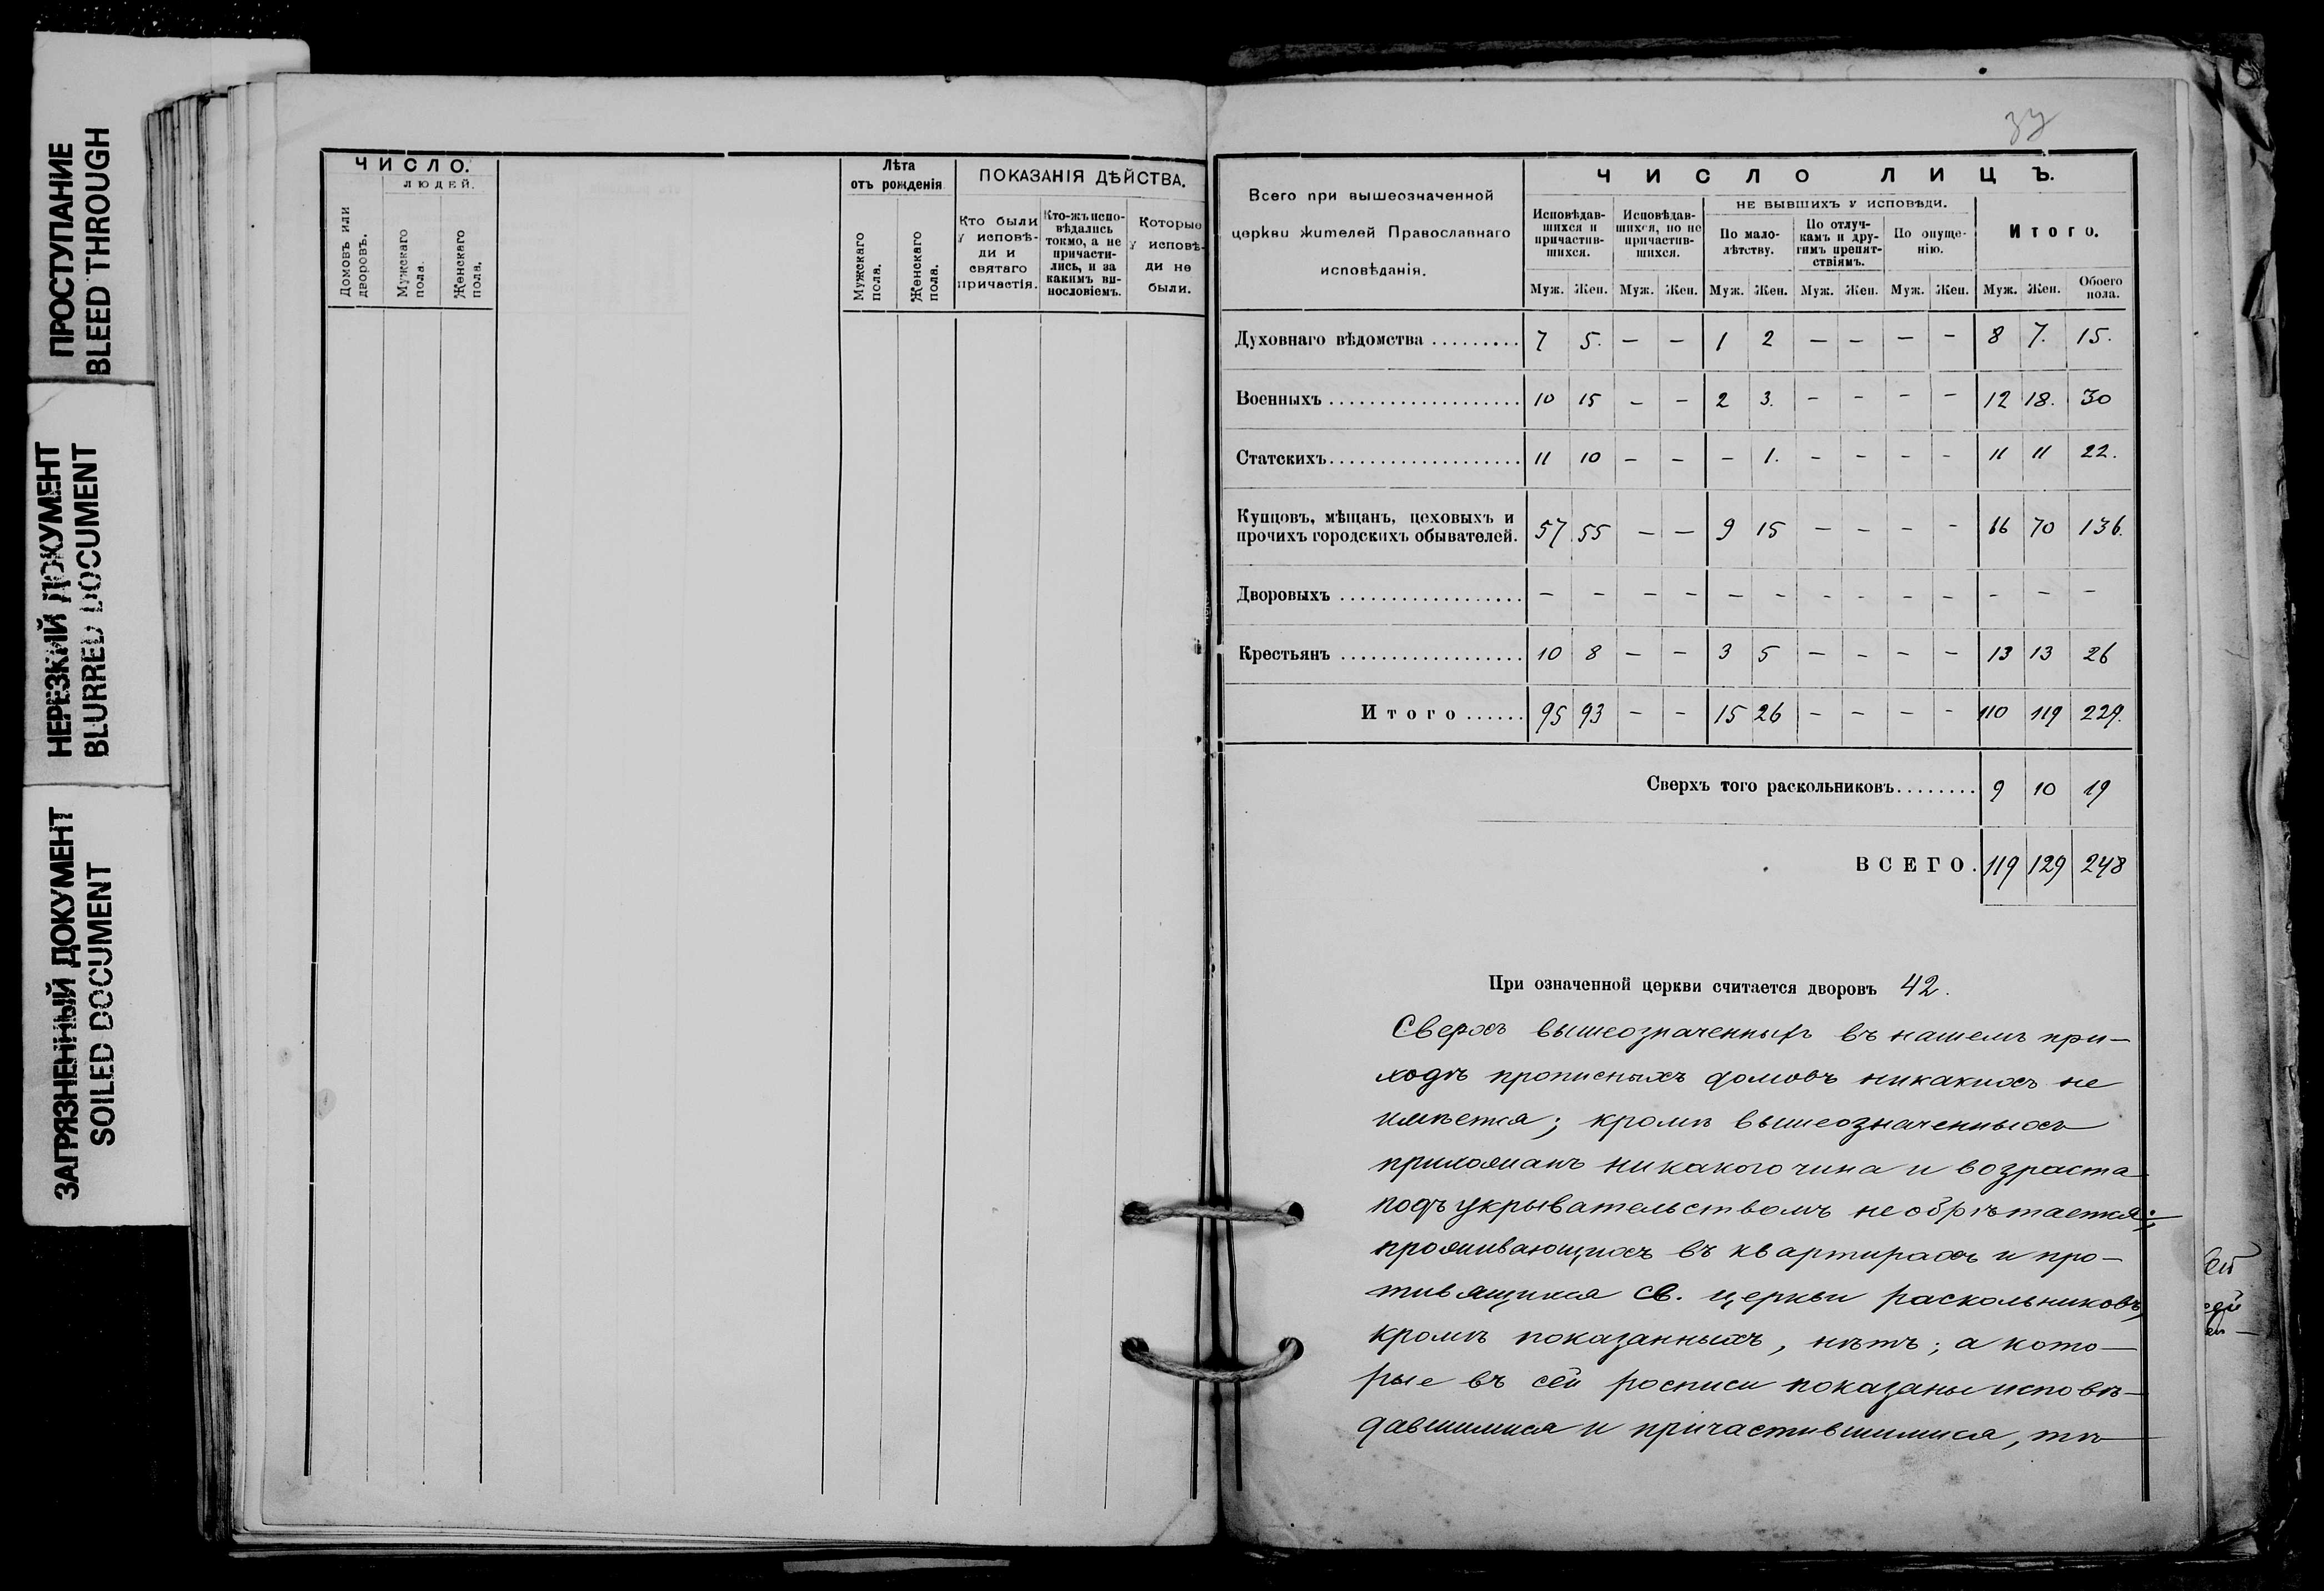 ПРОСТУПАНИЕ
BLEED THROUGH
НЕРЕЗКИЙ ДОКУМЕНТ
BLURRED DOCUMENT
ЗАГРЯЗНЕННЫЙ ДОКУМЕНТ
SOILED DOCUMENT
ЧИСЛО.
ЛЮДЕЙ.
Домовъ или дворовъ.
Мужскаго пола.
Женскаго пола.
Лѣта
отъ рожденія
Мужскаго пола.
Женскаго пола.
ПОКАЗАНІЯ ДѢЙСТВА.
Кто были
у исповѣ-
ди и
святаго
причастія.
Кто-жъ испо-
вѣдались
токмо, а не
причасти-
лись, и за
какимъ ви-
нословіемъ.
Которые
у исповѣ-
ди не
были.
37
Всего при вышеозначенной
церкви жителей Православнаго
исповѣданія.
ЧИСЛО ЛИЦЪ.
Исповѣдав-
шихся и
причастив-
шихся.
Исповѣдав-
шихся, но не
причастив-
шихся.
НЕ БЫВШИХЪ У ИСПОВѢДИ.
По мало-
лѣтству.
По отлуч-
камъ и дру-
гимъ препят-
ствіямъ.
По опуще-
нію.
Итого.
Муж. Жен. Муж. Жен. Муж. Жен. Муж. Жен. Муж. Жен. Муж. Жен. Обоего пола.
Духовнаго вѣдомства ......... 7 5. — — 1 2 — — — — 8 7. 15.
Военныхъ ................... 10 15 — — 2 3. — — — — 12 18. 30
Статскихъ................... 11 10 — — — 1. — — — — 11 11 22.
Купцовъ, мѣщанъ, цеховыхъ и
прочихъ городскихъ обывателей. 57 55 — — 9 15 — — — — 66 70 136.
Дворовыхъ .................. — — — — — — — — — — — — —
Крестьянъ .................. 10 8 — — 3 5 — — — — 13 13 26
Итого ...... 95 93 — — 15 26 — — — — 110 119 229.
Сверхъ того раскольниковъ........ 9 10 19
ВСЕГО. 119 129 248
При означенной церкви считается дворовъ 42.
Сверхъ вышеозначенныхъ въ нашемъ при-
ходѣ прописныхъ домовъ никакихъ не
имѣется; кромѣ вышеозначенныхъ
прихожанъ никакого чина и возраста
подъ укрывательствомъ не обрѣтается;
проживающихъ въ квартирахъ и про-
тивящихся св. церкви раскольниковъ,
кромѣ показанныхъ, нѣтъ; а кото-
рые въ сей росписи показаны исповѣ-
давшимися и причастившимися, тѣ